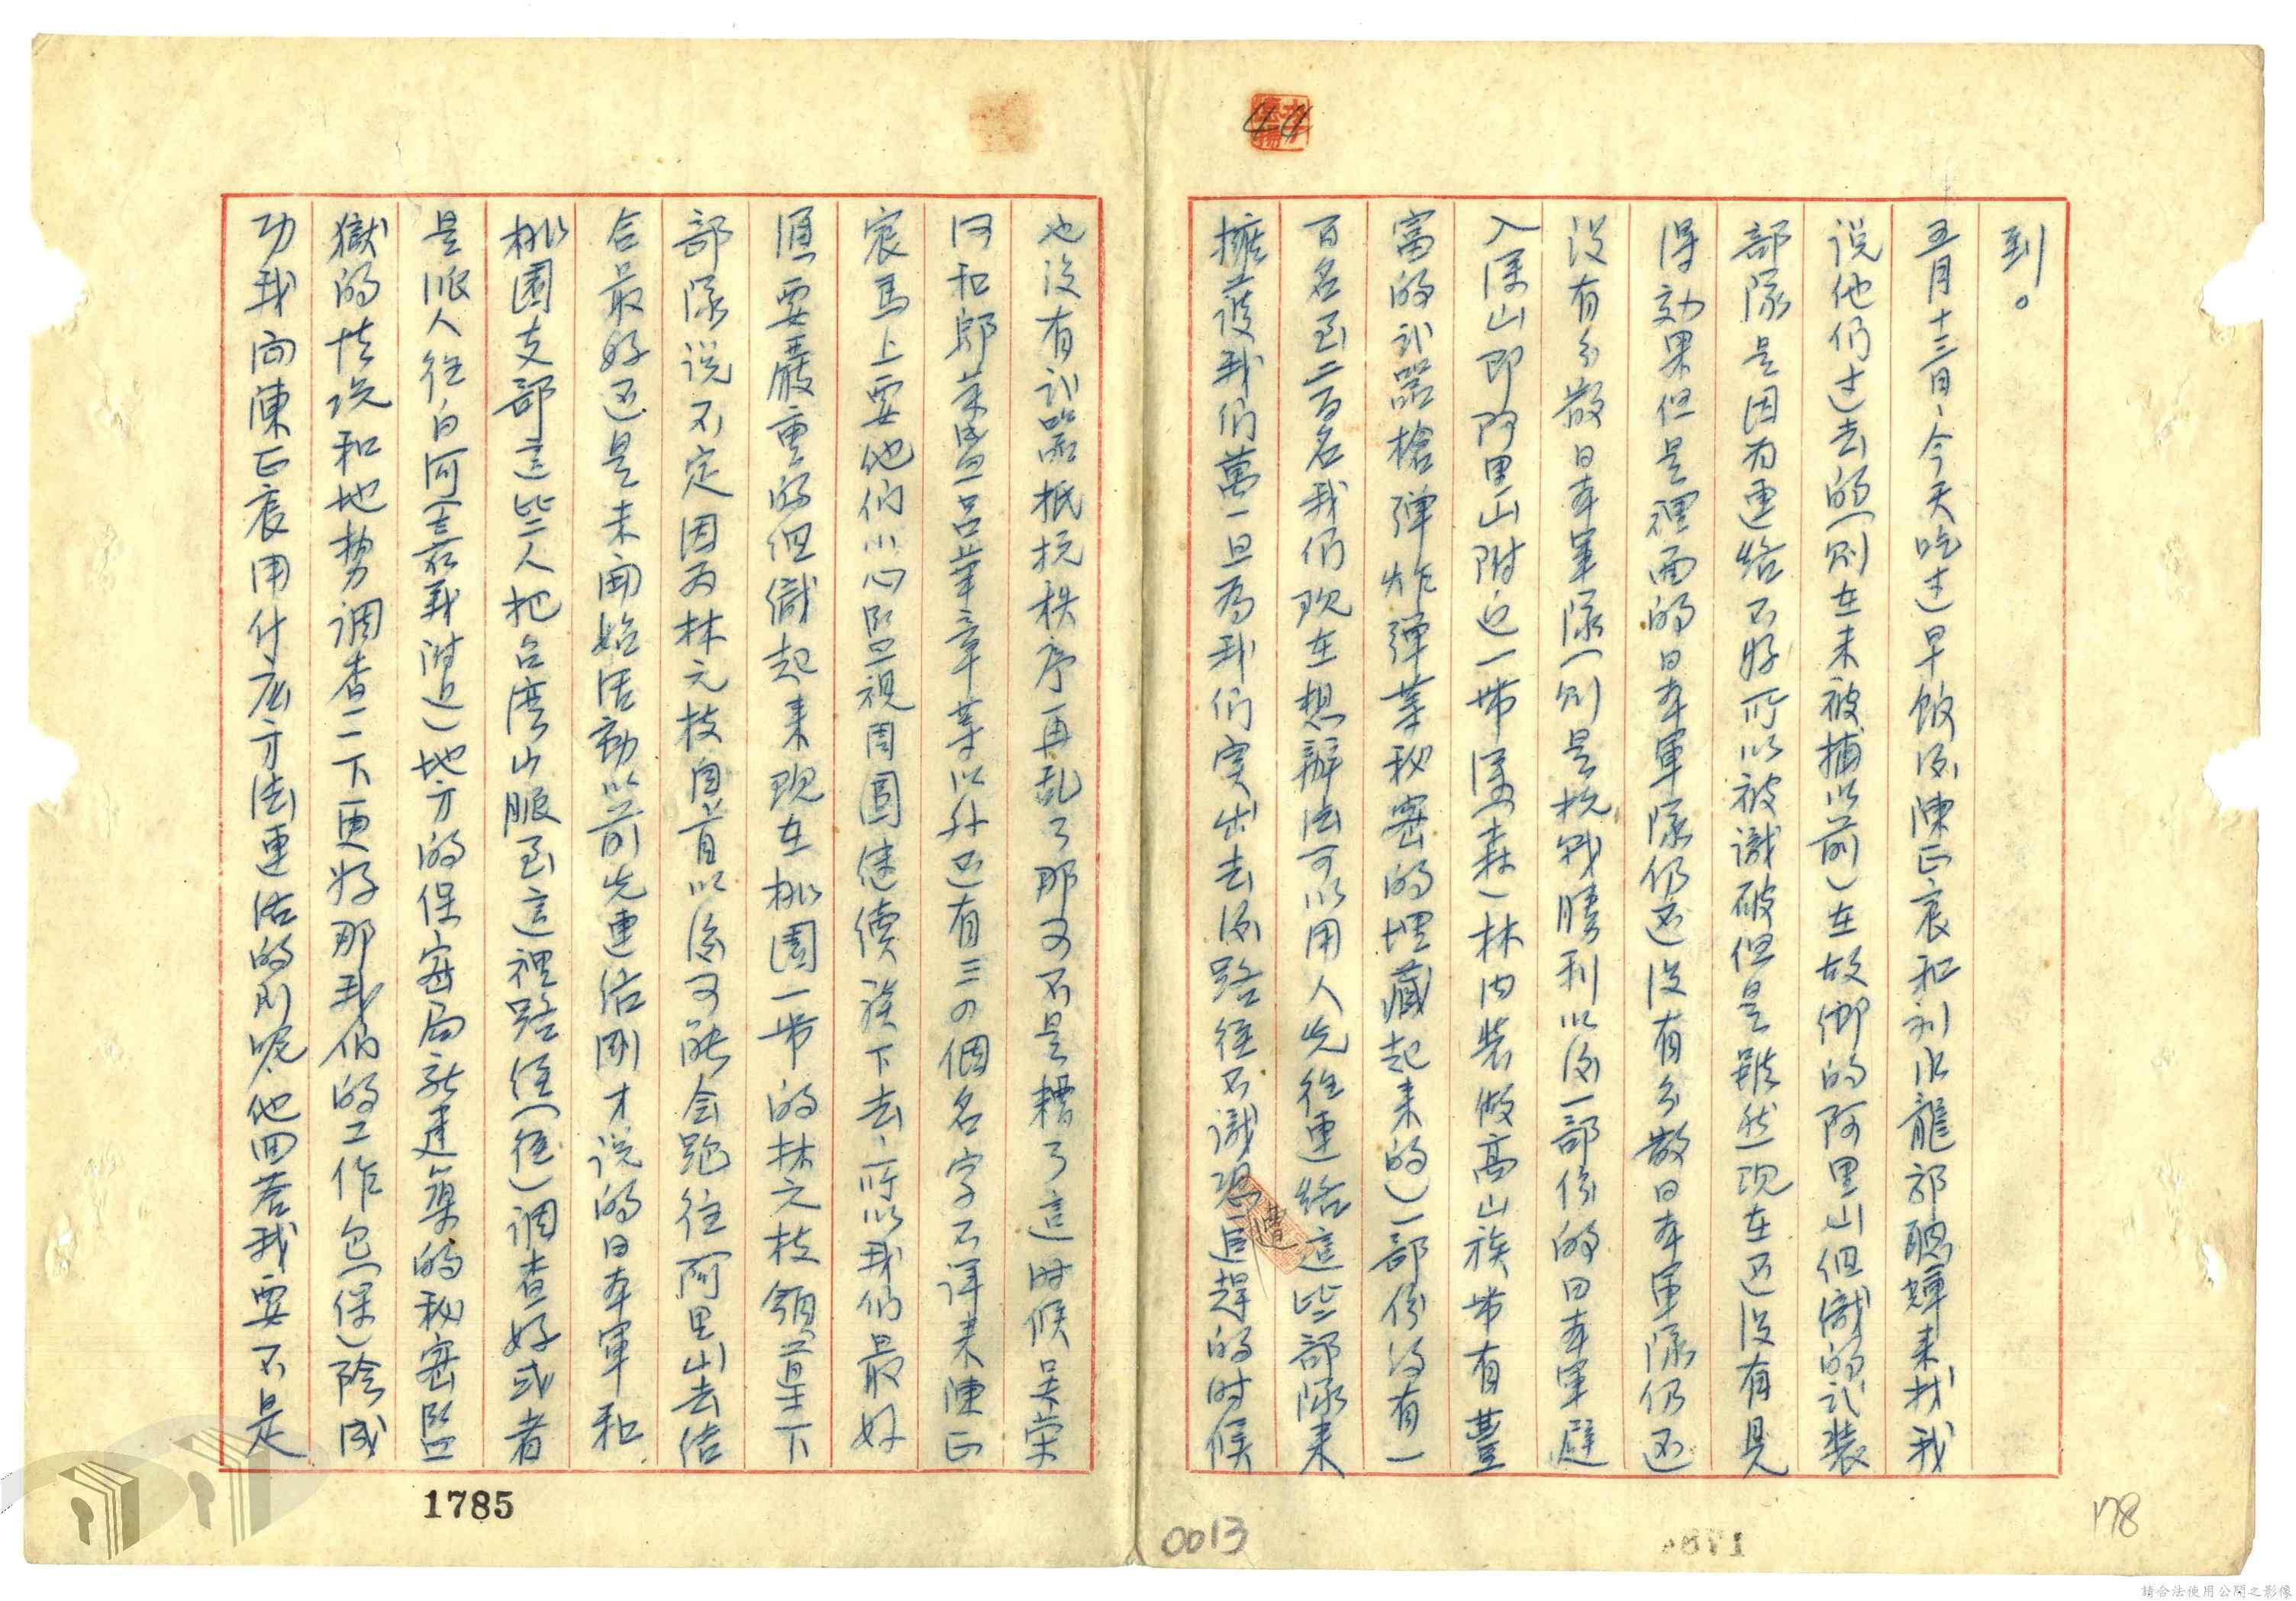 到。
五月十三日、今天吃过早飯後陳正宸和刘水龍郭聰輝来找我
说他们过去的(則在未被捕以前)在故鄉的阿里山但儎的武装
部隊是因为連絡不好所以被識破但是雖然现在还没有見
得効果但是裡面的日本軍隊仍还没有分散日本軍隊仍还
没有分散日本軍隊(則是抗战勝利以後一部份的日本軍避
入深山即阿里山附近一带深(森)林内装做高山族带有豐
富的武器槍弹炸弹葯秘密的埋藏起来的)一部份约有一
百名至二百名我们现在想辦法可以用人先往連絡這些部隊来
擁護我们萬一旦為我们突出去後路徑不識遭追趕的时候
也没有武器抵抗秩序再乱了那可不是糟了這时候吴荣
河和郎葉思吕華章等以外还有三の個名字不详来陳正
宸馬上要他们小心監視周圍継續談下去、所以我们最好
須要嚴重的但儎起来现在桃園一带的林元枝領導下
部隊说不定因为林元枝自首以後可能会跑往阿里山去结
合最好还是未開始活動以前先連佸剛才说的日本軍和
桃園支部這些人把台湾山脈至這裡路徑(徑)调查好或者
是派人往白河(嘉義附近)地方的保密局新建築的秘密監
獄的情况和地势调查一下更好那我们的工作包(保)险成
功我向陳正宸用什広方法連佸的則呢、他回答我要不是
遭
44
1785
0013
178
請合法使用公開之影像